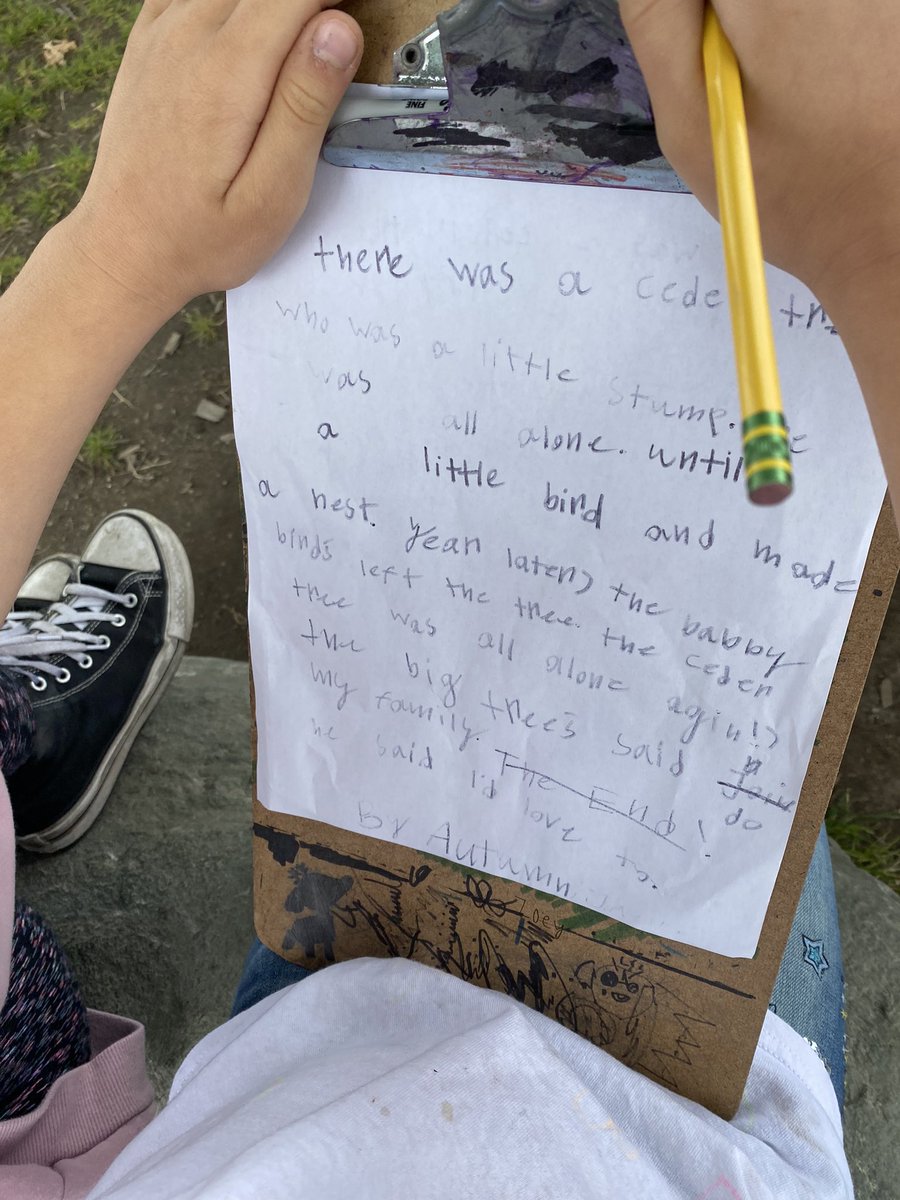 FINE
there was a ceder
who was a little stump.
was all alone. until
a little bird and made
a nest. Year later, the babby
birds left the tree. the ceder
tree was all alone agin!,
the big tree's said
my family. The End!
he said I'd love to.
do
By Autumn